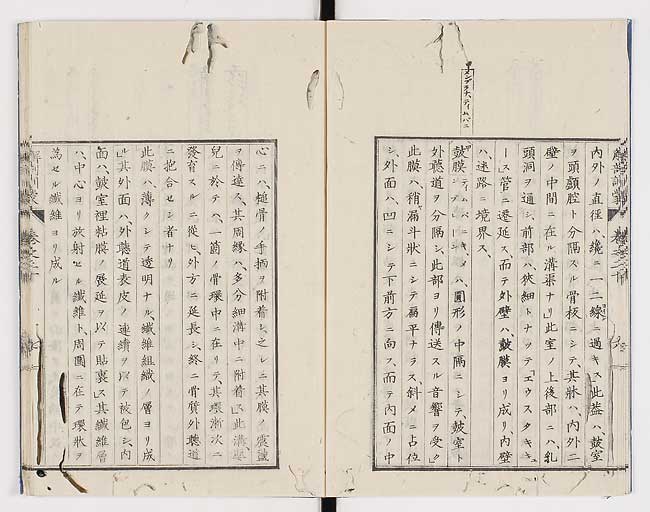 メンブラナ、ティムパニ
内外ノ直徑ハ纔ニ一二線ニ過キス此蓋ハ鼓室
ヲ頭顱腔ト分隔スル骨板ニシテ其狀ハ内外二
壁ノ中間ニ在ル溝渠ナリ此室ノ上後部ニハ乳
頭洞ヲ通シ前部ハ狹細トナツテ「エウスタキ
ース」管ニ遷延ス而テ外壁ハ鼓膜ヨリ成リ内壁
ハ迷路ニ境界ス
鼓膜ハ圓形ノ中隔ニシテ鼓室ト
外聽道ヲ分隔シ此部ヨリ傳送スル音響ヲ受ク
此膜ハ稍漏斗狀ニシテ扁平ナラス斜メニ占位
シ外面ハ凹ニシテ下前方ニ向フ而テ内面ノ中
心ニハ槌骨ノ手柄ヲ附着シ之レニ其膜ノ震盪
ヲ傳達ス其周緣ハ多分細溝中ニ附着ス此溝
兒ニ於テハ一箇ノ骨環中ニ在リテ其環漸次ニ
發育スルニ從ヒ外方ニ延長シ終ニ骨質外聽道
ニ抱合セシ者ナリ
此膜ハ薄クシテ透明ナル纖維組織ノ層ヨリ成
ル其外面ハ外聽道表皮ノ連續ヲ以テ被包シ内
面ハ鼓室裡粘膜ノ展延ヲ以テ貼裏ス其纖維層
ハ中心ヨリ放射セル纖維ト周圍ニ在テ環狀ヲ
爲セル纖維ヨリ成ル